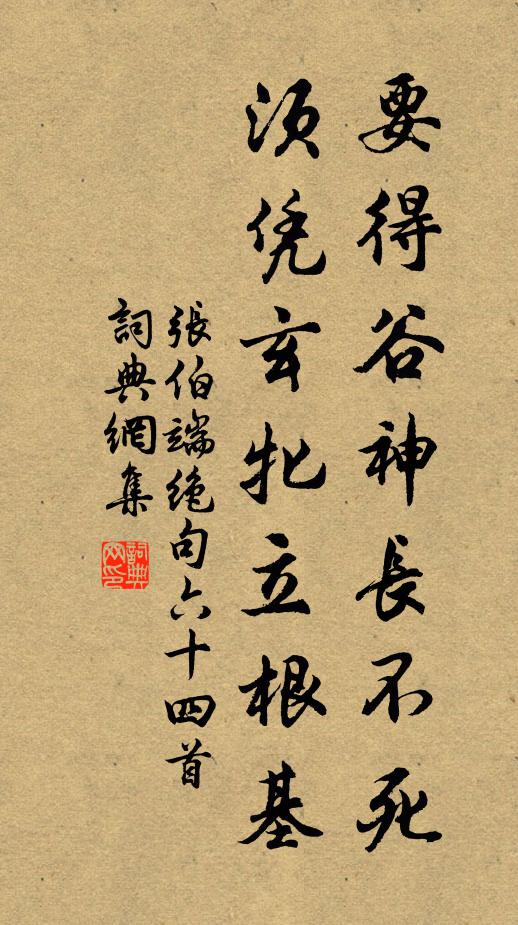 要得谷神長不死
須凭玄牝立根基
張伯端絶句六十四首
詞典網集
詞典網印